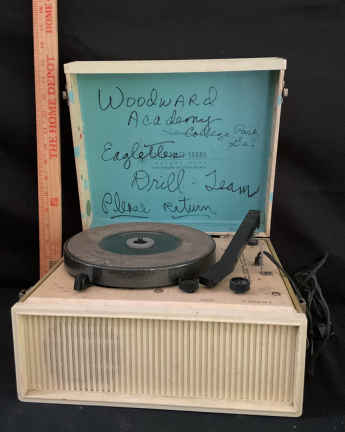 THE HOME DEPOT
HOME
Woodward
Academy
College Park
Ga.
Eaglettes
Drill-Team
Please return